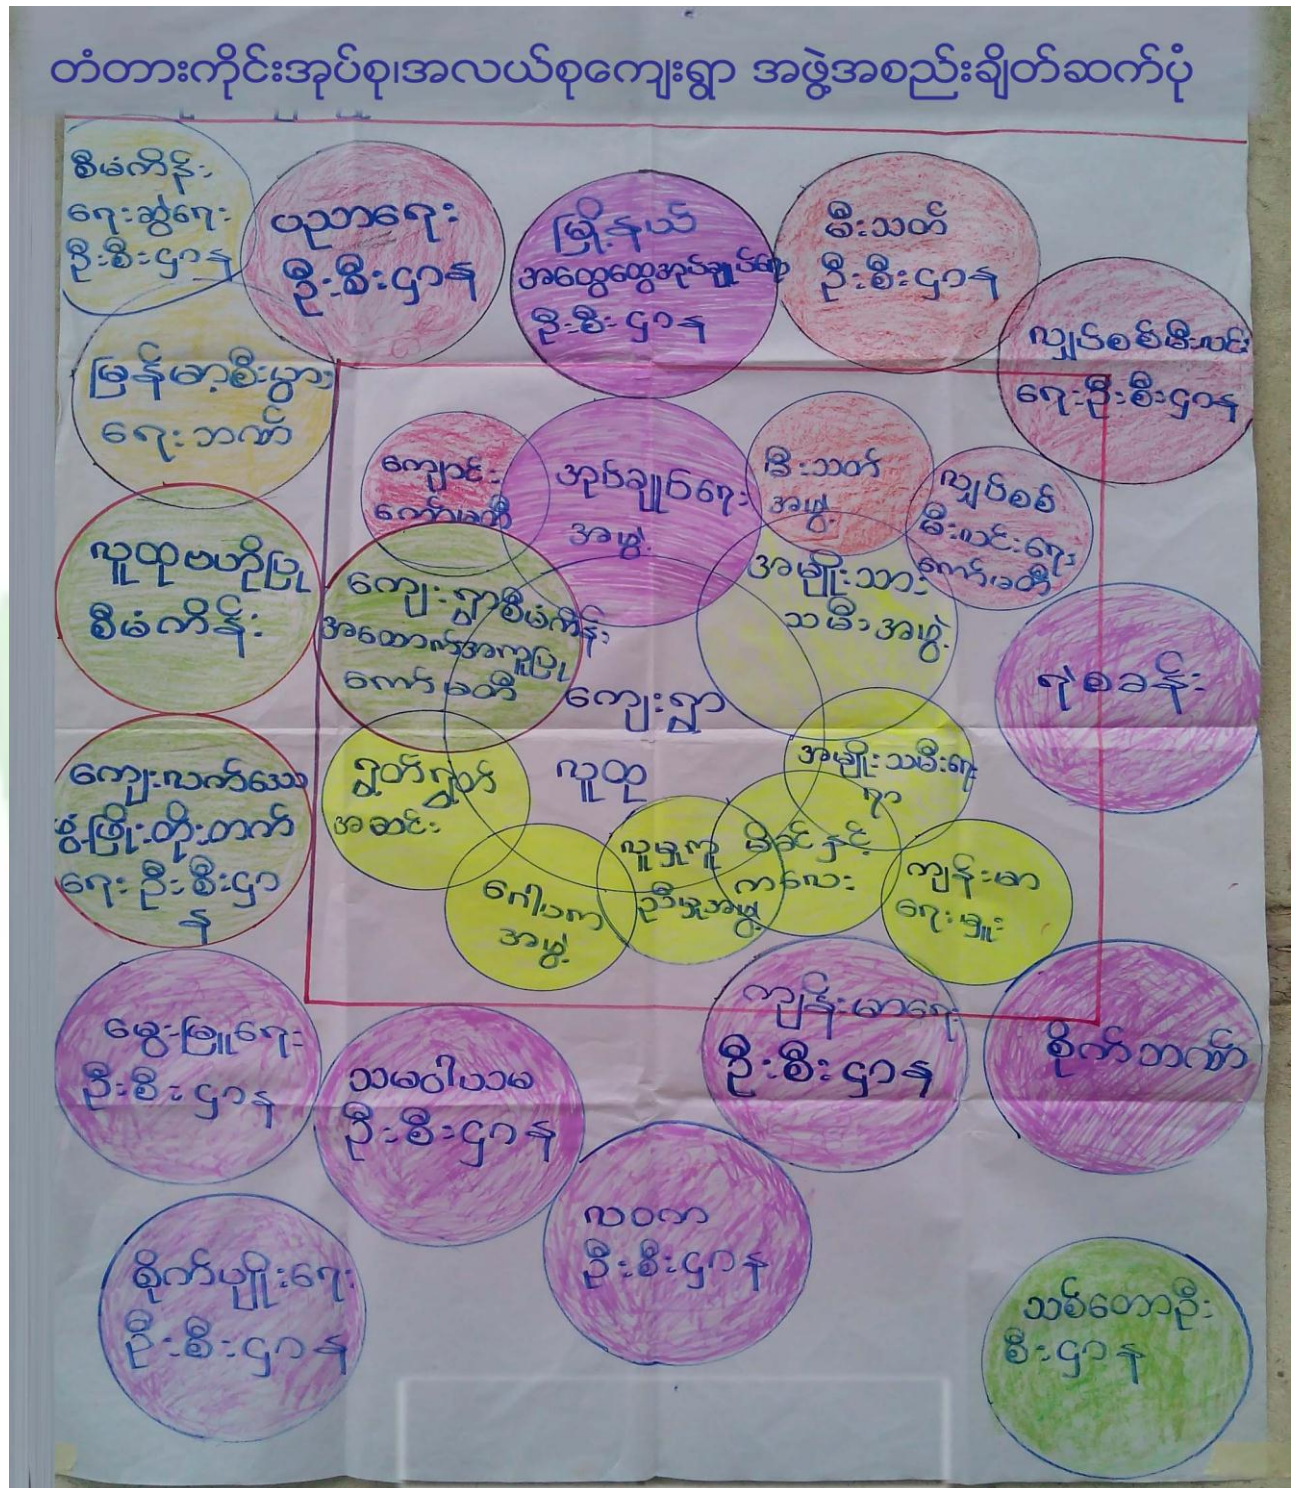 တံတားကိုင်းအုပ်စု၊အလယ်စုကျေးရွာ အဖွဲ့အစည်းချိတ်ဆက်ပုံ
စီမံကိန်း
ရေးဆွဲရေး
ဦးစီးဌာန
ပညာရေး
ဦးစီးဌာန
မြို့နယ်
အထွေထွေအုပ်ချုပ်ရေး
ဦးစီးဌာန
မီးသတ်
ဦးစီးဌာန
လျှပ်စစ်မီးလင်း
ရေးဦးစီးဌာန
မြန်မာ့စီးပွား
ရေးဘဏ်
ကျောင်း
ကော်မတီ
အုပ်ချုပ်ရေး
အဖွဲ့
မီးသတ်
အဖွဲ့
လျှပ်စစ်
မီးလင်းရေး
ကော်မတီ
လူထုဗဟိုပြု
စီမံကိန်း
ကျေးရွာစီမံကိန်း
အထောက်အကူပြု
ကော်မတီ
အမျိုးသား
သမီးအဖွဲ့
ရဲစခန်း
ကျေးရွာ
လူထု
ကျေးလက်ဒေသ
ဖွံ့ဖြိုးတိုးတက်
ရေးဦးစီးဌာ
န
ရွတ်ရွတ်
အဆင်း
အမျိုးသမီးရေး
ရာ
ဂေါပက
အဖွဲ့
လူမှုကူ
ညီမှုအဖွဲ့
မိခင်နှင့်
ကလေး
ကျန်းမာ
ရေးမှူး
မွေးမြူရေး
ဦးစီးဌာန
သမဝါယမ
ဦးစီးဌာန
ကျန်းမာရေး
ဦးစီးဌာန
စိုက်ဘဏ်
လဝက
ဦးစီးဌာန
စိုက်ပျိုးရေး
ဦးစီးဌာန
သစ်တောဦး
စီးဌာန